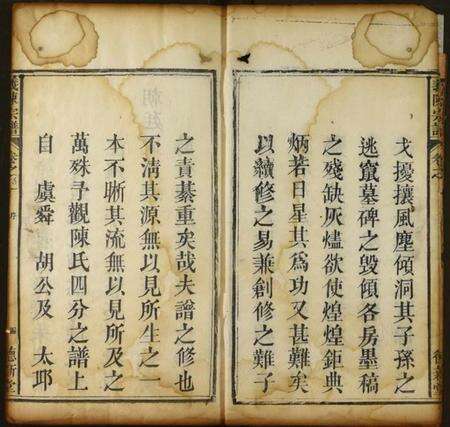 戈擾攘風塵傾洞其子孫之
逃竄墓碑之毀傾各房墨稿
之殘缺灰燼欲使煌煌鉅典
炳若日星其為功又甚難矣
以續修之易兼創修之難子
之責綦重矣哉夫譜之修也
不清其源無以見所生之一
本不晰其流無以見所及之
萬殊予觀陳氏四分之譜上
自 虞舜 胡公及 太邱